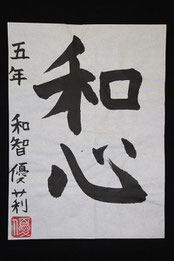 和心
五年 和智優莉
優